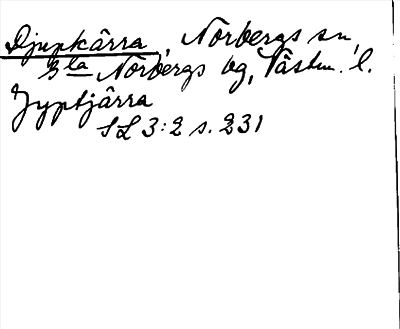 Djupkärra, Norbergs sn,
Gla Norbergs bg, Västm. l.
Jyptjärra
SL 3:2 s. 231